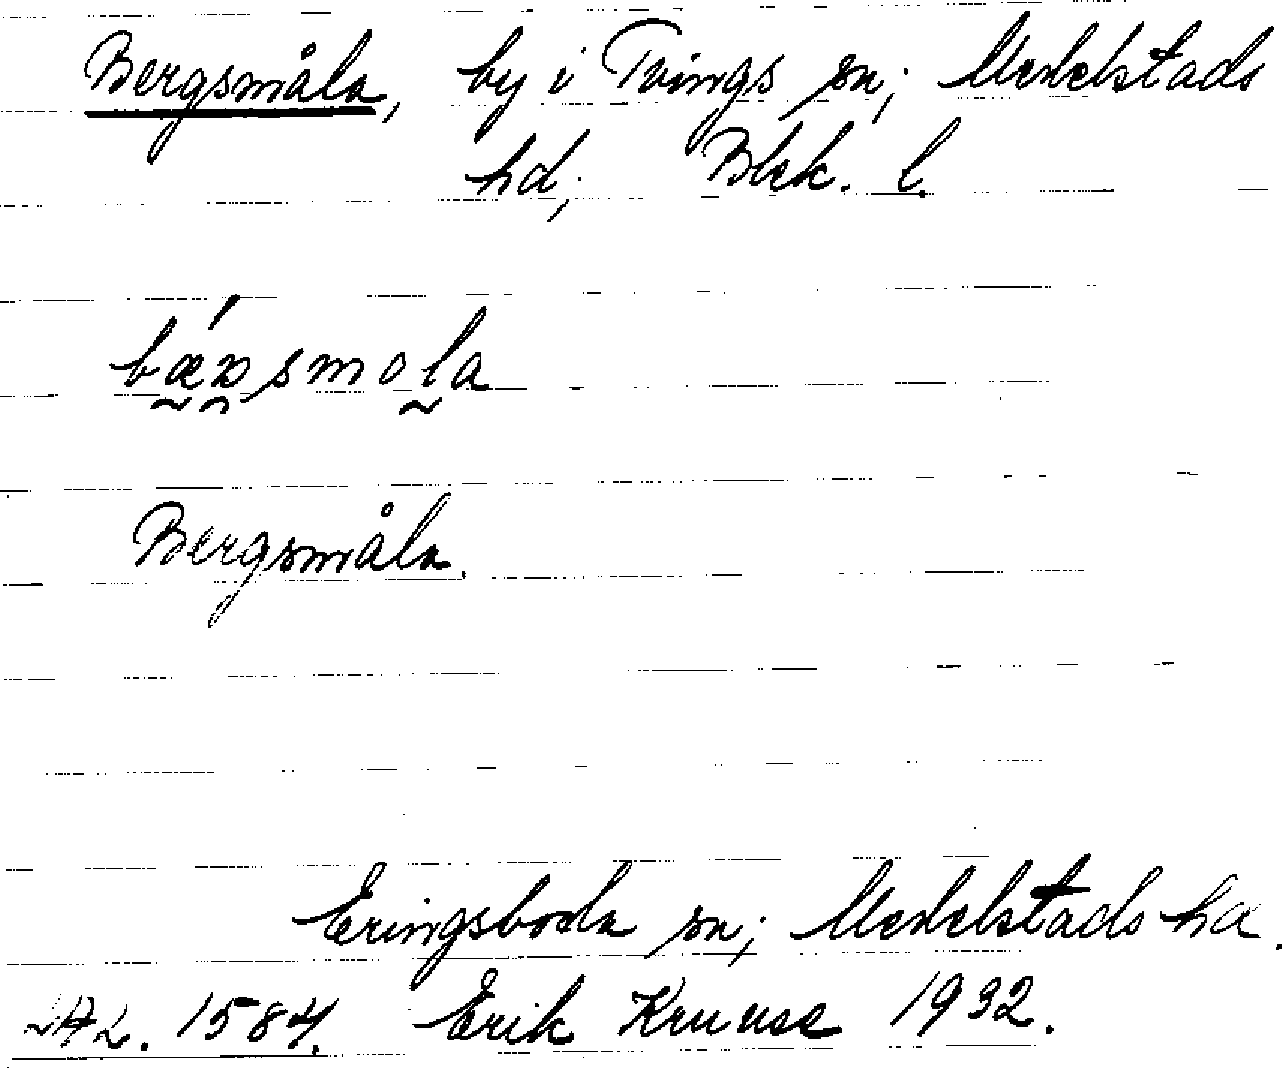 Bergsmåla, by i Tvings sn; Medelstads
hd, Blek. l.
bǽ̰ɔ̯smol̰a
Bergsmåla.
Eringsboda sn; Medelstads hd.
1584. Erik Kruuse 1932.